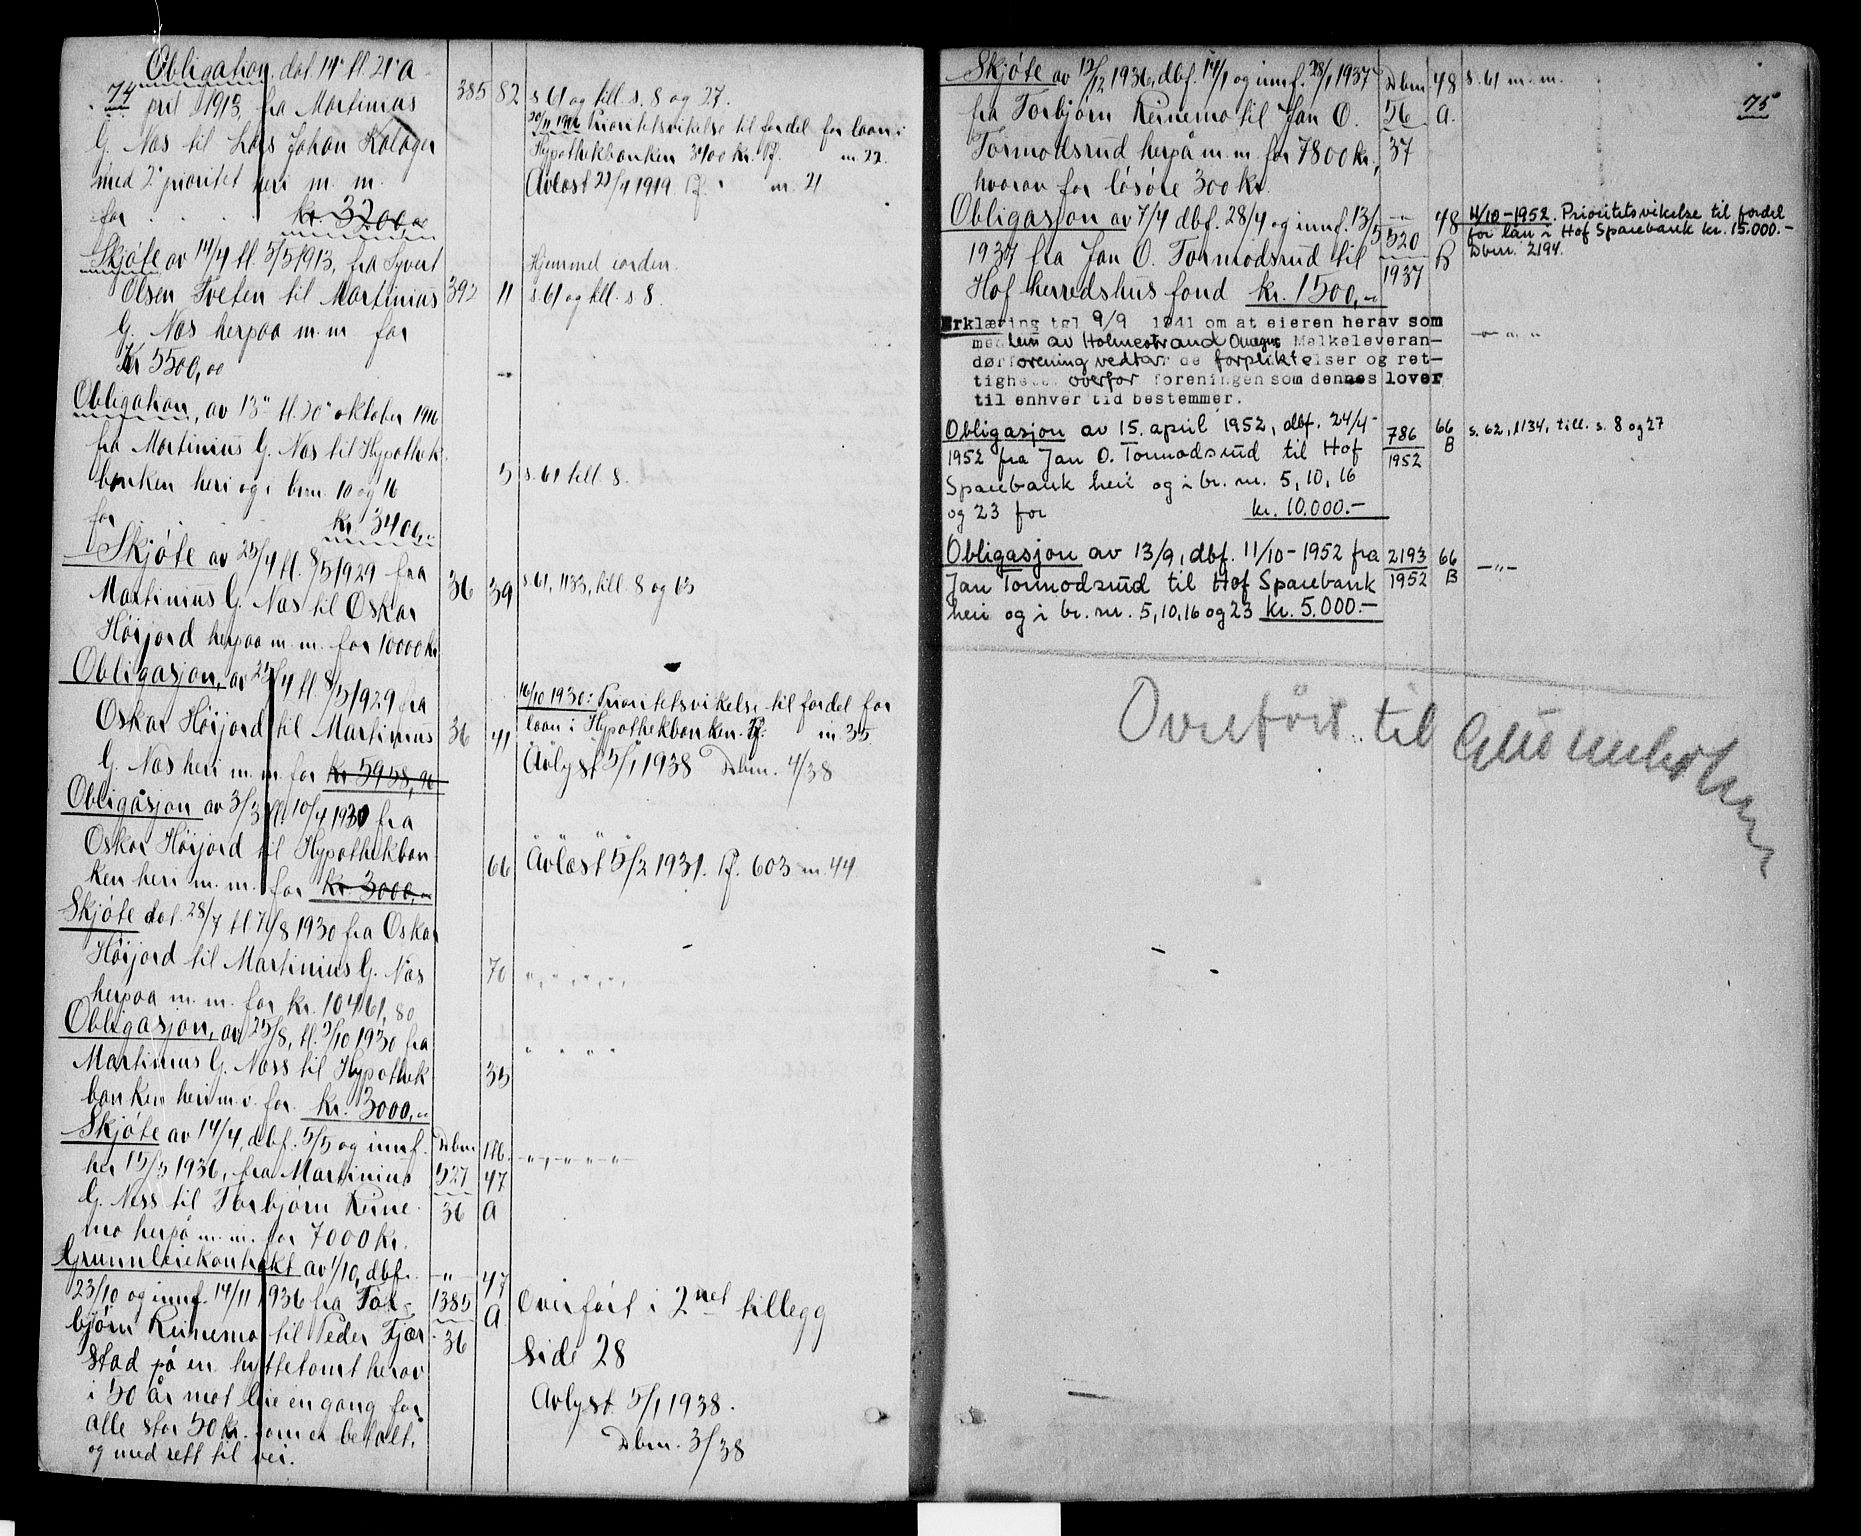 74
Obligation dat. 14' tl. 21' a
pril 1913, fra Martinius 385 82 s 61 og till. s. 8 og 27.
G. Næs til Lars Johan
med 2' prioritet heri m. m.
for kr. 3200,00
20/11 1916 Prioritetsvikelse til fordel for laan i
Hypothekbanken 3400 kr. Pf. m. 22.
Avløst 22/4 1919 Pf. m. 21
Skjøte av 14/4 tl. 5/5 1913, fra Syvert
Olsen Tveten til Martinius 392 11
G. Næs herpaa m. m. for
Kr 5500,00
Hjemmel i orden.
s. 61 og till. s 8.
Obligation, av 13' tl. 20' oktober 1916
fra Martinius G. Næs til Hypothek-
banken heri og i brn. 10 og 16 5 s. 61 till. 8.
for kr. 3400,-
Skjøte av 25/4 tl. 8/5 1929 fra
Martinius G. Næs til Oskar 36 39 s. 61, 1133, till. 8 og 63
Høijord herpaa m. m. for 10000 kr.
Obligasjon, av 25/4 tl 8/5 1929 fra
Oskar Høijord til Martinius 36 41
G. Næs heri m. m. for kr 5958,96
16/10 1930: Prioritetsvikelse til fordel for
laan i Hypothekbanken. Pf. m 35.
Avlyst 5/1 1938 Dbnr. 4/38
Obligasjon av 3/3 tl. 10/4 1930 fra
Oskar Høijord til Hypothekban-
ken heri m. m. for kr 3000,- 66 Avløst 5/2 1931. Pf. 603 m. 44
Skjøte dat. 28/7 tl 7/8 1930 fra Oskar
Høijord til Martinius G. Næs 70 " " " " "
herpaa m. m. for kr. 10461,80
Obligasjon, av 25/8, tl. 3/10 1930 fra
Martinius G. Næss til Hypothek- 35 " " " "
banken heri m. v. for kr. 3000,-
Skjøte av 14/4, dbf. 5/5 og innf. Dbnr
her 15/5 1936, fra Martinius 527 47 " " " " "
G. Næss til Torbjørn Reine- 36 A
mo herpå m. m. for 7000 kr.
Grunnleiekontrakt av 1/10, dbf. -"- 47
23/10 og innf. 14/11 1936 fra Tor- 1385 A
bjørn Reinemo til Peder Fjær- 36
stad på en hyttetomt herav
i 50 år mot leie en gang for
alle stor 50 kr. som er betalt,
og med rett til vei.
Overført i 2net tillegg
side 28
Avlyst 5/1 1938.
Dbnr. 3/38
75
Skjøte av 12/12 1936, dbf. 14/1 og innf. 28/1 1937 Dbnr 48 s. 61 m. m.
fra Torbjørn Reinemo til Jan O. 56 A.
Tormodsrud herpå m. m. for 7800 kr., 37
hvorav for løsøre 300 kr.
Obligasjon av 7/4 dbf. 28/4 og innf. 13/5 -"- 48
1937 fra Jan O. Tormodsrud til 520 B
Hof herredshus fond kr. 1500,- 1937
11/10-1952. Prioritetsvikelse til fordel
for lån i Hof Sparebank kr. 15.000.-
Dbnr. 2194.
Erklæring tgl 9/9 1941 om at eieren herav som
medlem av Holmestrand Omegns Melkeleveran-
dørforening vedtar de forpliktelser og ret-
tigheter overfor foreningen som dennes lover
til enhver tid bestemmer.
-"- " "
Obligasjon av 15. april 1952, dbf. 24/4- 786 66 s. 62, 1134, till. s. 8 og 27
1952 fra Jan O. Tormodsrud til Hof 1952 B
Sparebank heri og i br. nr. 5, 10, 16
og 23 for kr. 10.000.-
Obligasjon av 13/9, dbf. 11/10-1952 fra 2193 66
Jan Tormodsrud til Hof Sparebank 1952 B -"-
heri og i br. nr. 5, 10, 16 og 23 kr. 5.000.-
Overført til